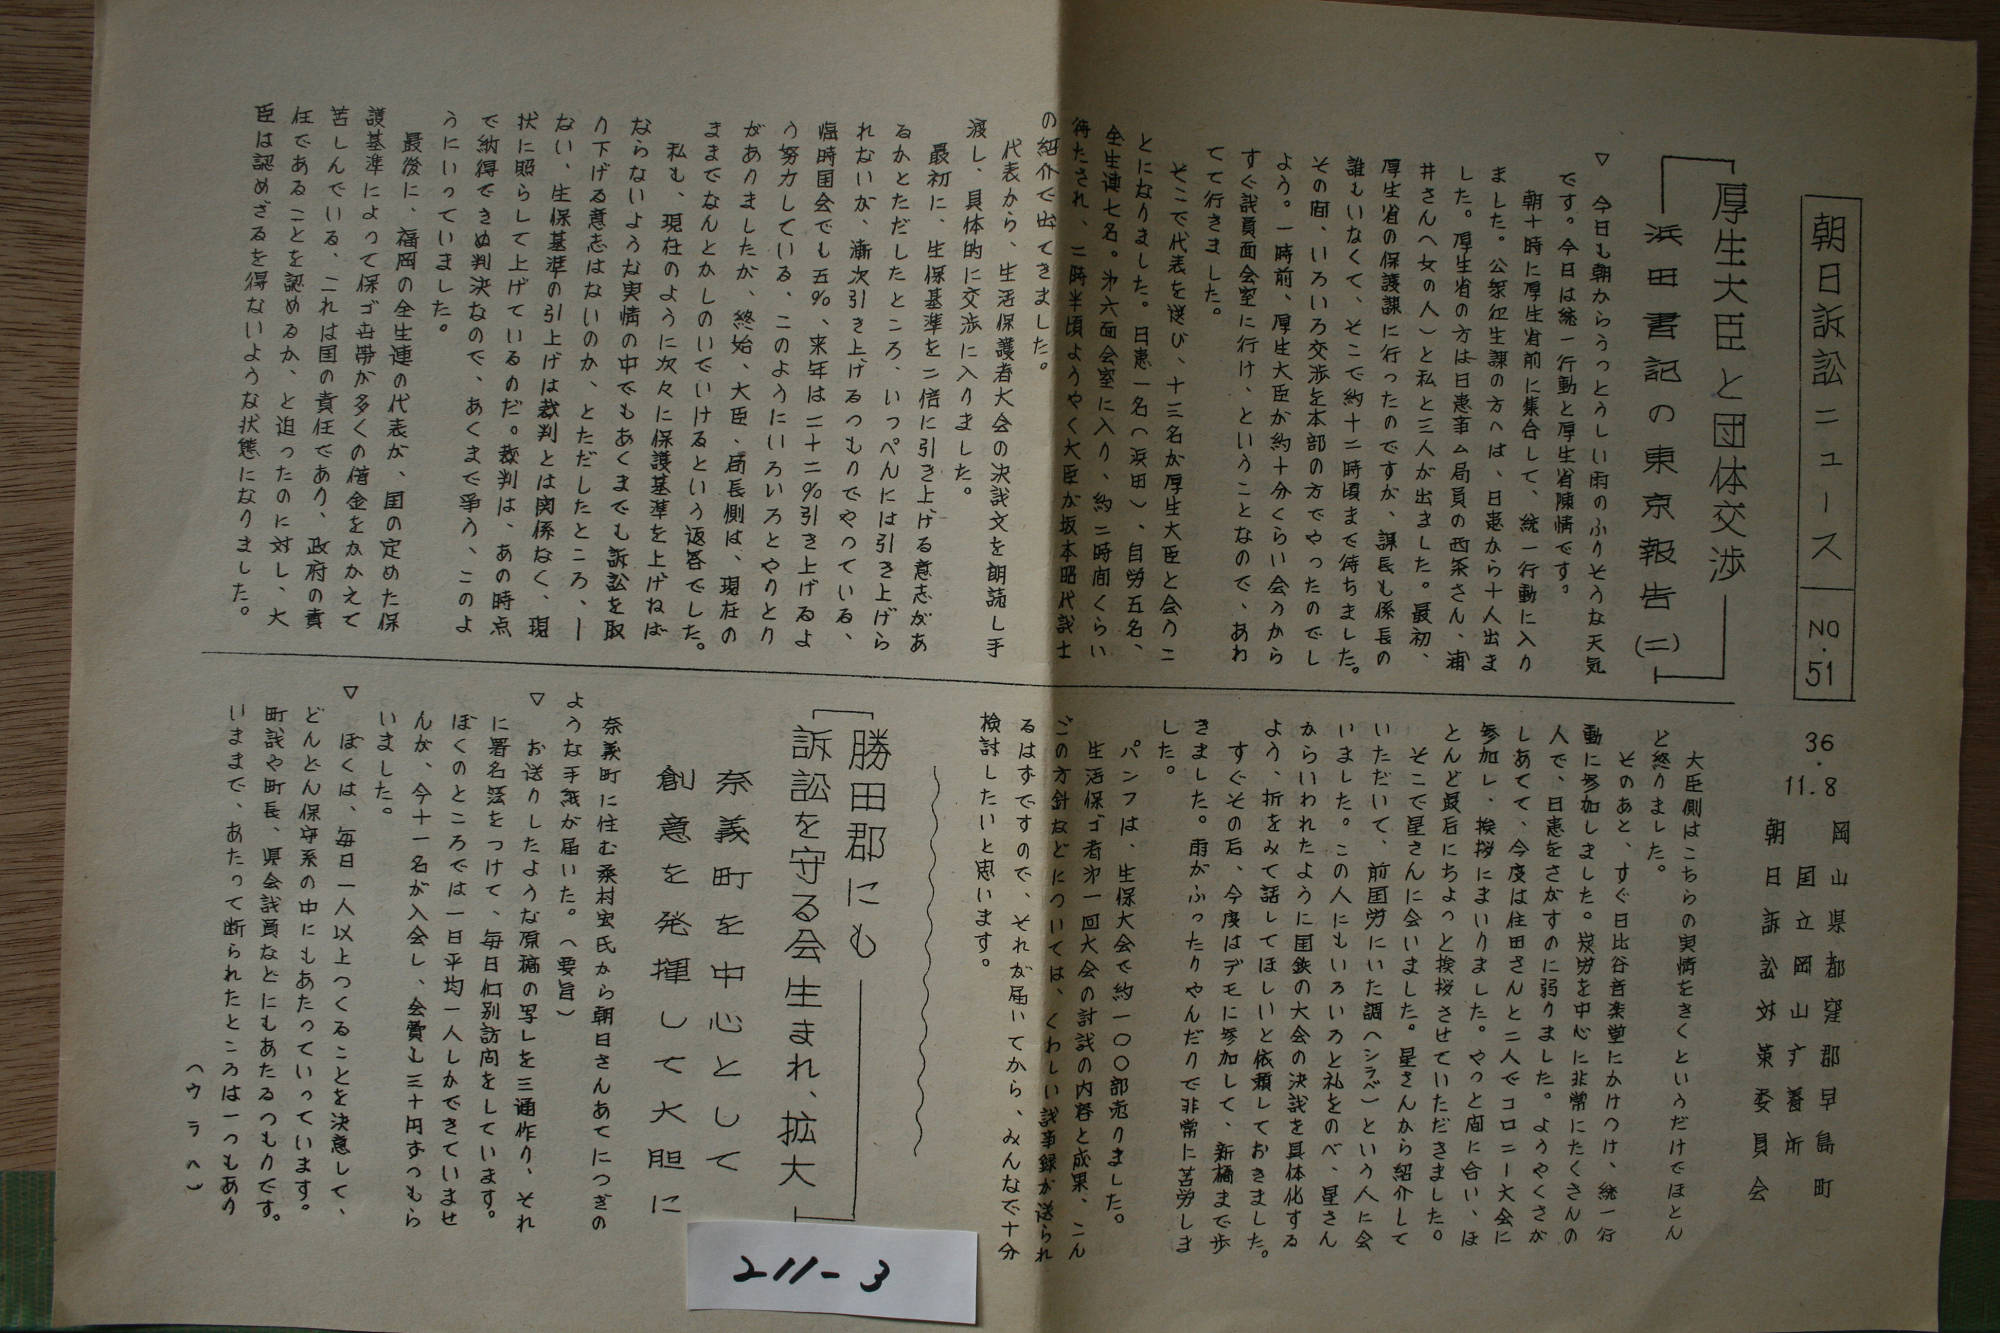 朝日訴訟ニュース NO.51
36.11.8
岡山県都窪郡早島町
国立岡山療養所
朝日訴訟対策委員会
厚生大臣と団体交渉
浜田書記の東京報告(二)
▽ 今日も朝からうっとうしい雨のふりそうな天気
です。今日は統一行動と厚生省陳情です。
朝十時に厚生省前に集合して、統一行動に入り
ました。公衆衛生課の方へは、日患から十人出ま
した。厚生省の方は日患事ム局員の西条さん、浦
井さん(女の人)と私と三人が出ました。最初、
厚生省の保護課に行ったのですが、課長も係長の
誰もいなくて、そこで約十二時頃まで待ちました。
その間、いろいろ交渉を本部の方でやったのでし
ょう。一時前、厚生大臣が約十分くらい会うから
すぐ議員面会室に行け、ということなので、あわ
てて行きました。
そこで代表を選び、十三名が厚生大臣と会うこ
とになりました。日患一名(浜田)、自労五名、
全生連七名。第六面会室に入り、約二時間くらい
待たされ、二時半頃ようやく大臣が坂本昭代議士
の紹介で出てきました。
代表から、生活保護者大会の決議文を朗読し手
渡し、具体的に交渉に入りました。
最初に、生保基準を二倍に引き上げる意志があ
るかとただしたところ、いっぺんには引き上げら
れないが、漸次引き上げるつもりでやっている、
臨時国会でも五%、来年は二十二%引き上げるよ
う努力している、このようにいろいろとやりとり
がありましたが、終始、大臣、局長側は、現在の
ままでなんとかしのいでいけるという返答でした。
私も、現在のように次々に保護基準を上げねば
ならないような実情の中でもあくまでも訴訟を取
り下げる意志はないのか、とただしたところ、—
ない、生保基準の引上げは裁判とは関係なく、現
状に照らして上げているのだ。裁判は、あの時点
で納得できぬ判決なので、あくまで争う、このよ
うにいっていました。
最後に、福岡の全生連の代表が、国の定めた保
護基準によって保ゴ世帯が多くの借金をかかえて
苦しんでいる、これは国の責任であり、政府の責
任であることを認めるか、と迫ったのに対し、大
臣は認めざるを得ないような状態になりました。
大臣側はこちらの実情をきくというだけでほとん
ど終りました。
そのあと、すぐ日比谷音楽堂にかけつけ、統一行
動に参加しました。炭労を中心に非常にたくさんの
人で、日患をさがすのに弱りました。ようやくさが
しあてて、今度は住田さんと二人でコロニー大会に
参加し、挨拶にまいりました。やっと間に合い、ほ
とんど最后にちょっと挨拶させていただきました。
そこで星さんに会いました。星さんから紹介して
いただいて、前国労にいた調(シラベ)という人に会
いました。この人にもいろいろと礼をのべ、星さん
からいわれたように国鉄の大会の決議を具体化する
よう、折をみて話してほしいと依頼しておきました。
すぐその后、今度はデモに参加して、新橋まで歩
きました。雨がふったりやんだりで非常に苦労しま
した。
パンフは、生保大会で約一〇〇部売りました。
生活保ゴ者第一回大会の討議の内容と成果、こん
ごの方針などについては、くわしい議事録が送られ
るはずですので、それが届いてから、みんなで十分
検討したいと思います。
勝田郡にも
訴訟を守る会生まれ、拡大
奈義町を中心として
創意を発揮して大胆に
奈義町に住む桑村宏氏から朝日さんあてにつぎの
ような手紙が届いた。(要旨)
▽ お送りしたような原稿の写しを三通作り、それ
に署名簿をつけて、毎日個別訪問をしています。
ぼくのところでは一日平均一人しかできていませ
んが、今十一名が入会し、会費も三十円ずつもら
いました。
▽ ぼくは、毎日一人以上つくることを決意して、
どんどん保守系の中にもあたっていっています。
町議や町長、県会議員などにもあたるつもりです。
いままで、あたって断られたところは一つもあり
(ウラへ)
211-3